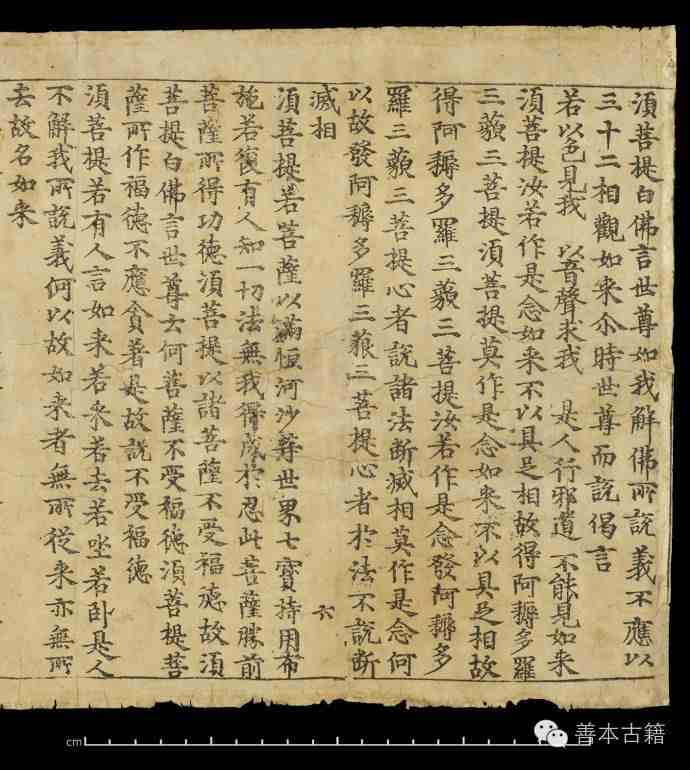 須菩提白佛言世尊如我解佛所說義不應以
三十二相觀如来尒時世尊而說偈言
若以色見我 以音聲求我 是人行邪道 不能見如来
須菩提汝若作是念如来不以具足相故得阿耨多羅
三藐三菩提須菩提莫作是念如来不以具足相故
得阿耨多羅三藐三菩提汝若作是念發阿耨多
羅三藐三菩提心者說諸法断滅相莫作是念何
以故發阿耨多羅三藐三菩提心者於法不說断
滅相
六
須菩提若菩薩以滿恒河沙等世界七寶持用布
施若復有人知一切法無我得成於忍此菩薩勝前
菩薩所得功德須菩提以諸菩薩不受福德故須
菩提白佛言世尊云何菩薩不受福德須菩提菩
薩所作福德不應貪著是故說不受福德
須菩提若有人言如来若来若去若坐若卧是人
不解我所說義何以故如来者無所從来亦無所
去故名如来
cm
善本古籍